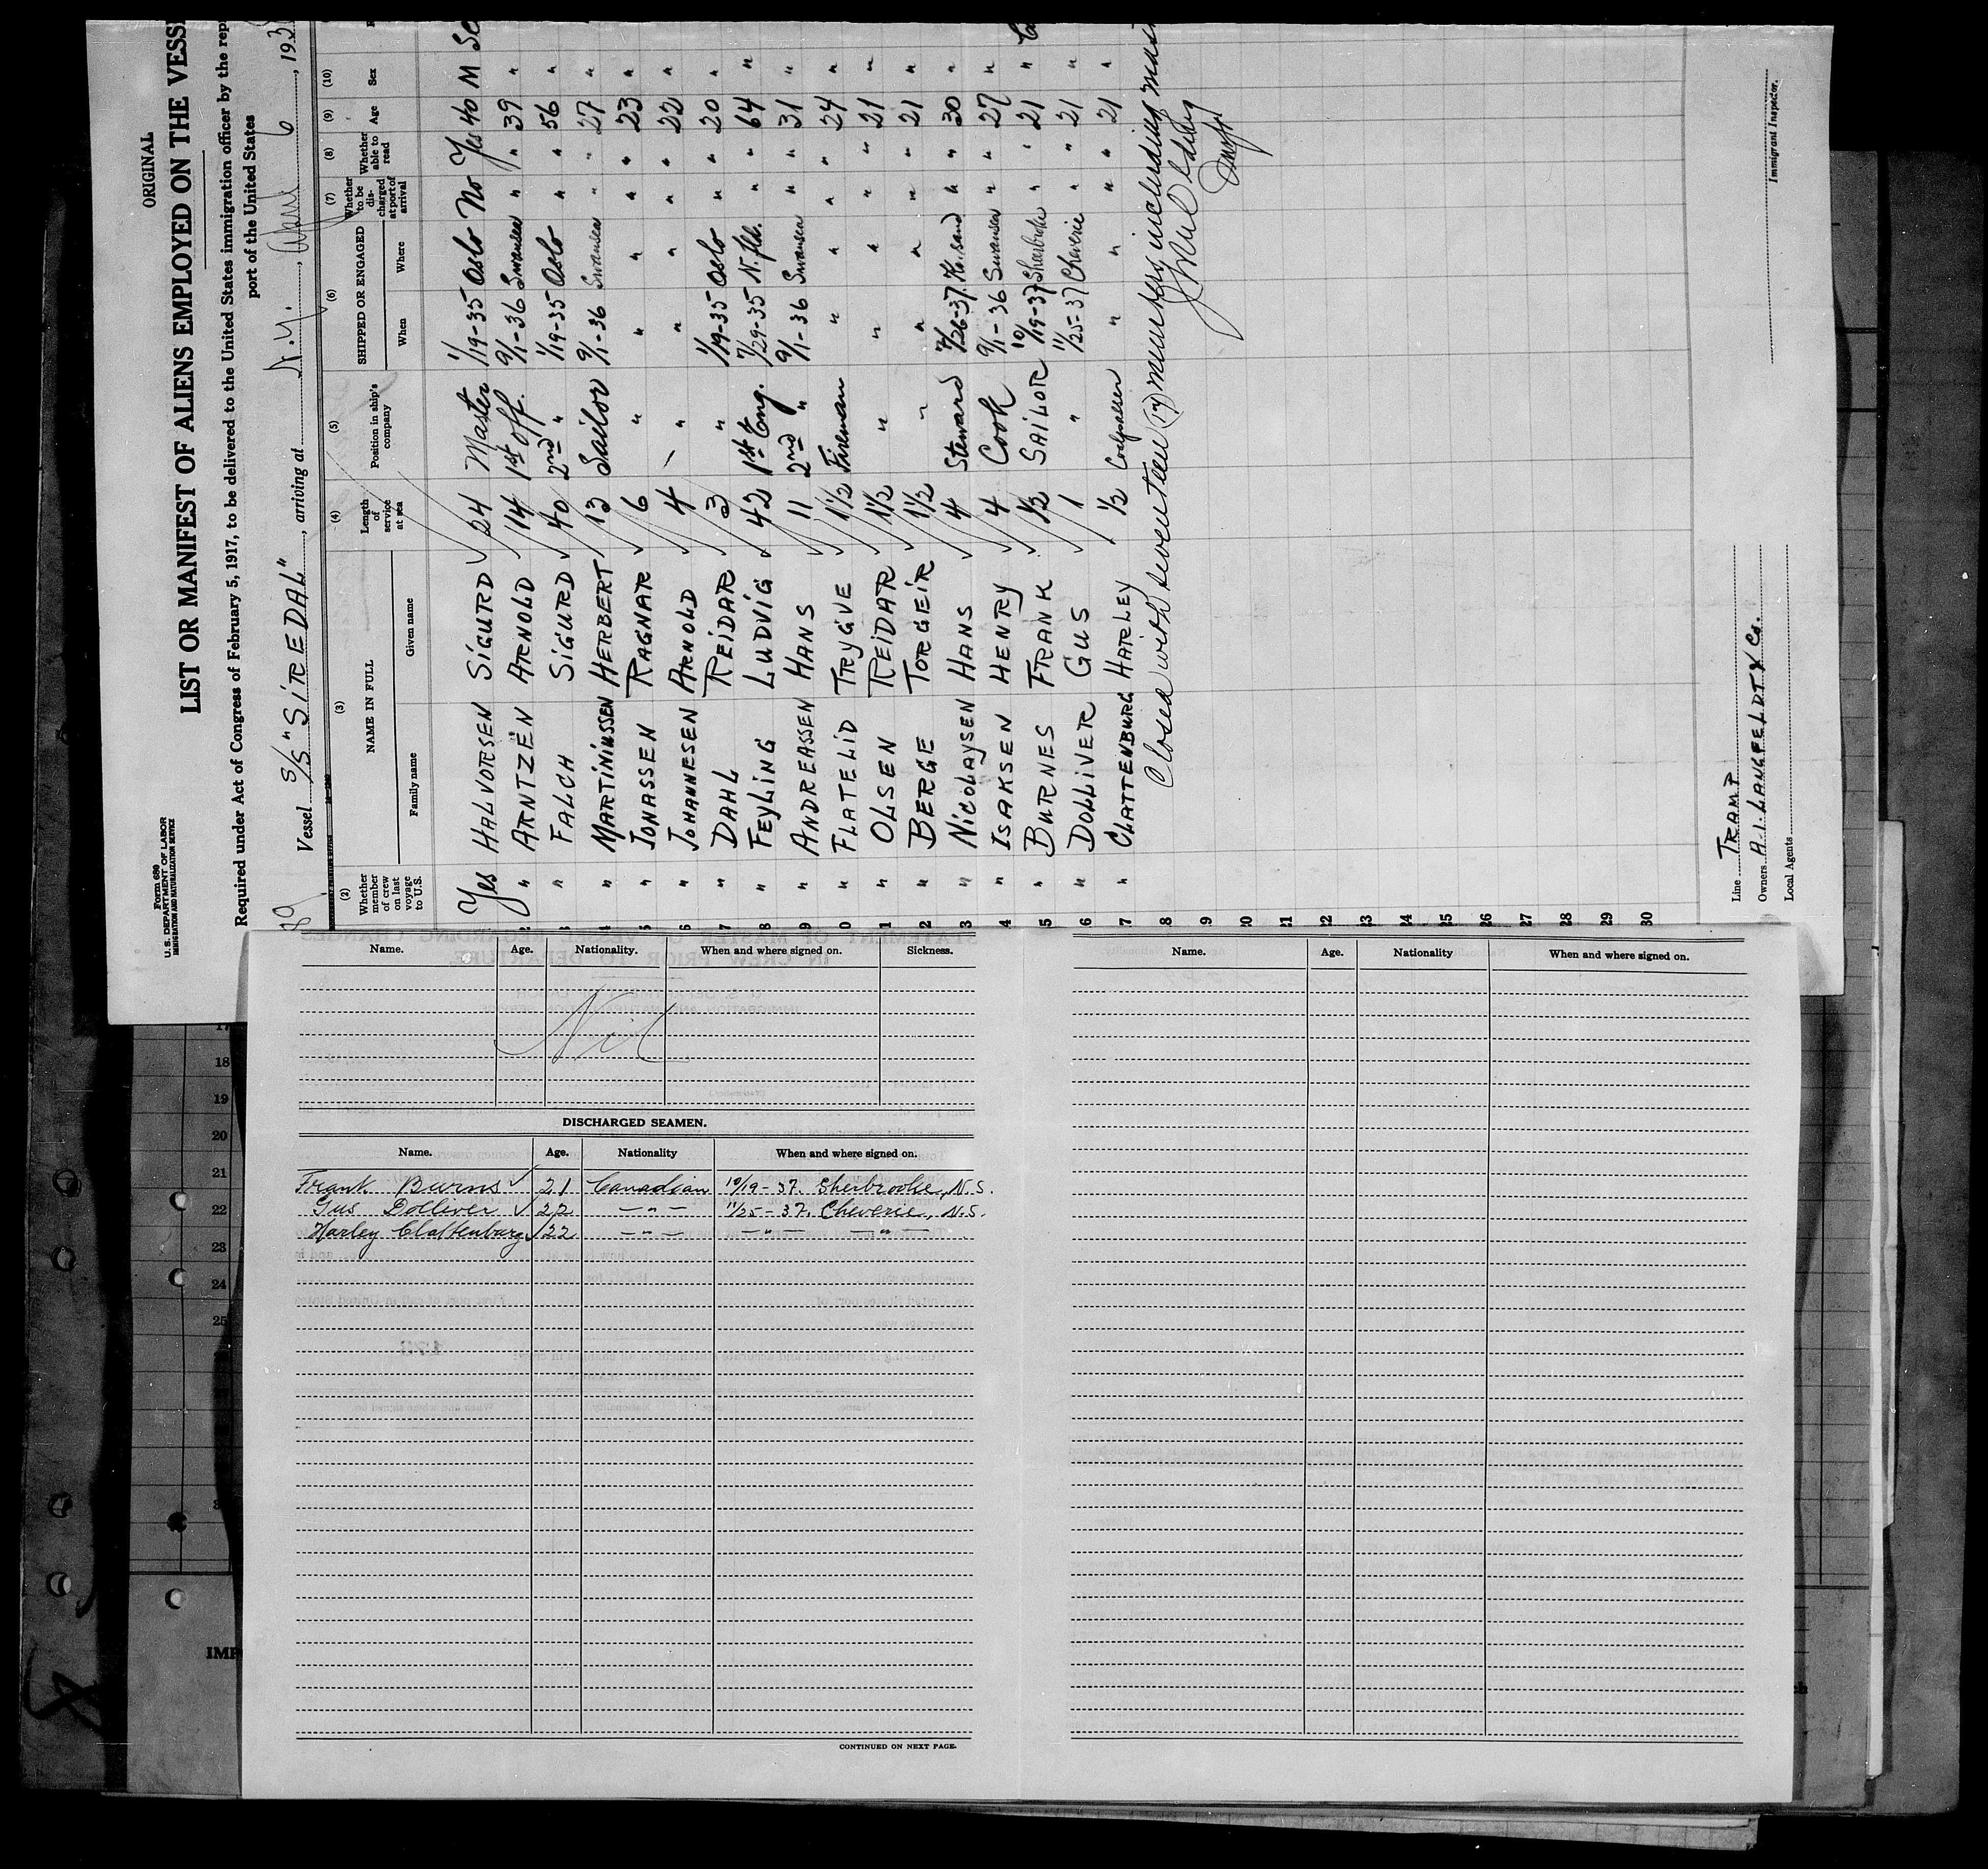 ORIGINAL
Form 680
U. S. DEPARTMENT OF LABOR
IMMIGRATION AND NATURALIZATION SERVICE
LIST OR MANIFEST OF ALIENS EMPLOYED ON THE VESS
Required under Act of Congress of February 5, 1917, to be delivered to the United States immigration officer by the rep
port of the United States
Vessel S/S "SIREDAL", arriving at N.Y., 6, 193
(2) (3) (4) (5) (6) (7) (8) (9) (10)
Whether member of crew on last voyage to U.S. NAME IN FULL Family name Given name Length of service at sea Position in ship's company SHIPPED OR ENGAGED When Where Whether to be discharged at port of arrival Whether able to read Age Sex
Yes HALVORSEN SIGURD 24 Master 1/19-35 Oslo No Yes 40 M Sc
2 " ARNTZEN ARNOLD 14 1st off. 9/1-36 Swansea " " 39 "
3 " FALCH SIGURD 40 2nd " 1/19-35 Oslo " " 56 "
4 " MARTINIUSSEN HERBERT 13 Sailor 9/1-36 Swansea " " 27 "
5 " JONASSEN RAGNAR 6 " " " " " 23 "
6 " JOHANNESEN ARNOLD 4 " " " " " 22 "
7 " DAHL REIDAR 3 " 1/19-35 Oslo " " 20 "
8 " FEYLING LUDVIG 42 1st Eng. 7/29-35 N.flk. " " 64 "
9 " ANDREASSEN HANS 11 2nd " 9/1-36 Swansea " " 31 "
0 " FLATELID TRYGVE 1½ Fireman " " " " 24 "
1 " OLSEN REIDAR 1½ " " " " " 21 "
2 " BERGE TORGEIR 1½ " " " " " 21 "
3 " NICOLAYSEN HANS 4 Steward 7/26-37 Kr.sand " " 30 "
4 " ISAKSEN HENRY 4 Cook 9/1-36 Swansea " " 27 "
5 " BURNES FRANK ½ SAILOR 10/19-37 Sherbroke " " 21 "
6 " DOLLIVER GUS 1 " 11/25-37 Cheverie " " 21 "
7 " CLATTENBURG HARLEY ½ Coalpasser " " " " 21 "
8 Closed with seventeen (17) members including mas
9
10
11
12
13
14
15
16
17
18
19
20
21
22
23
24
25
26
27
28
29
30
Line TRAMP
Owners A. I. LANGFELDT & Co.
Local Agents
Immigrant Inspector.
Name. Age. Nationality. When and where signed on. Sickness.
Nil
DISCHARGED SEAMEN.
Name. Age. Nationality When and where signed on.
Frank Burns 21 Canadian 10/19-37. Sherbrooke, N.S.
Gus Dolliver 22 — " — 11/25-37. Cheverie, N.S.
Harley Clattenburg 22 — " — — " — — " —
CONTINUED ON NEXT PAGE.
Name. Age. Nationality When and where signed on.
17
18
19
20
21
22
23
24
25
IMP